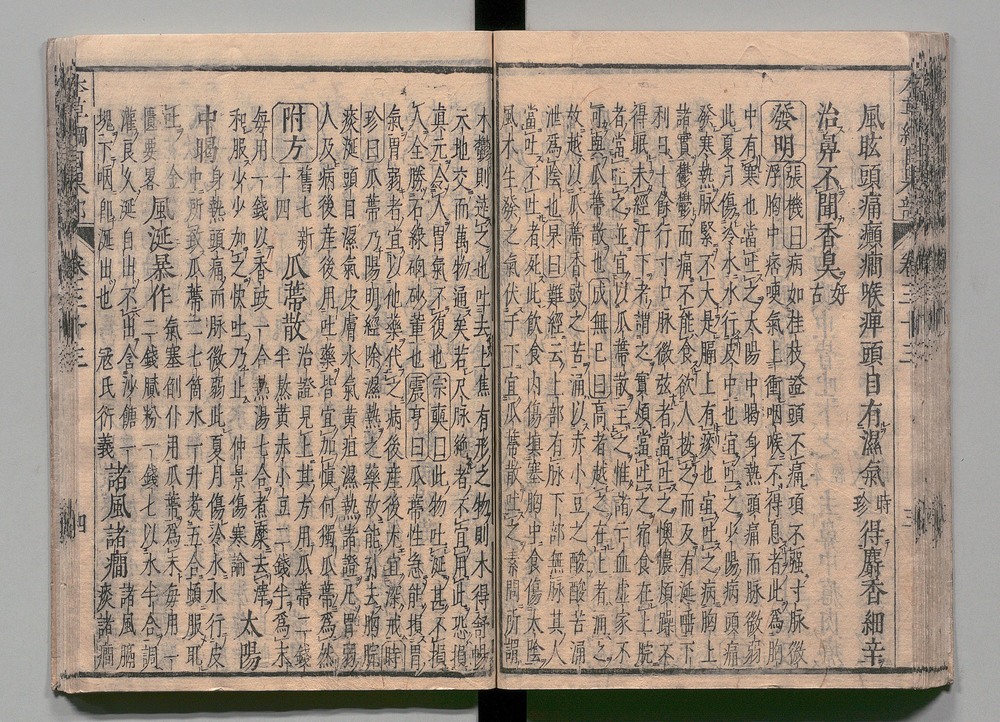 風眩頭痛癲癇喉痺頭目有濕氣時珍得麝香細辛
治鼻不聞香臭好古
發明張機曰病如桂枝證頭不痛項不強寸脈微
浮胸中痞哽氣上衝咽喉不得息者此爲胸
中有寒也當吐之太陽中暍身熱頭痛而脈微弱
此夏月傷冷水水行皮中也宜吐之少陽病頭痛
發寒熱脈緊不大是膈上有痰也宜吐之病胸上
諸實鬱鬱而痛不能食欲人按之而反有涎唾下
利日十餘行寸口脈微弦者當吐之懊憹煩躁不
得眠未經汗下者謂之實煩當吐之宿食在上脘
者當吐之並宜以瓜蒂散主之惟諸亡血虛家不
可與瓜蒂散也成無已曰高者越之在上者涌之
故越以瓜蒂香豉之苦涌以赤小豆之酸酸苦涌
泄爲陰也杲曰難經云上部有脈下部無脈其人
當吐不吐者死此飲食內傷塡塞胸中食傷太陰
風木生發之氣伏于下宜瓜蒂散吐之素問所謂
木鬱則達之也吐去上焦有形之物則木得舒暢
天地交而萬物通矣若尺脈絶者不宜用此恐損
眞元令人胃氣不復也宗奭曰此物吐涎甚不損
人全勝石綠硇砂輩也震亨曰瓜蒂性急能損胃
氣胃弱者宜以他藥代之病後産後尤宜深戒時
珍曰瓜蒂乃陽明經除濕熱之藥故能引去胸脘
痰涎頭目濕氣皮膚水氣黃疸濕熱諸證凡胃弱
人及病後産後用吐藥皆宜加愼何獨瓜蒂爲然
附方舊七新十四瓜蒂散治證見上其方用瓜蒂二錢
半熬黃赤小豆二錢半爲末
每用一錢以香豉一合熱湯七合煮糜去滓
和服少少加之快吐乃止仲景傷寒論太陽
中暍身熱頭痛而脈微弱此夏月傷冷水水行皮
中所致瓜蒂二七箇水一升煮五合頓服取
吐金
匱要畧風涎暴作氣塞倒仆用瓜蒂爲末每用一
二錢膩粉一錢匕以水半合調
灌良久涎自出不出含沙餹一
塊下咽卽涎出也寇氏衍義諸風諸癇諸風膈
痰諸癇
卷三十三
四